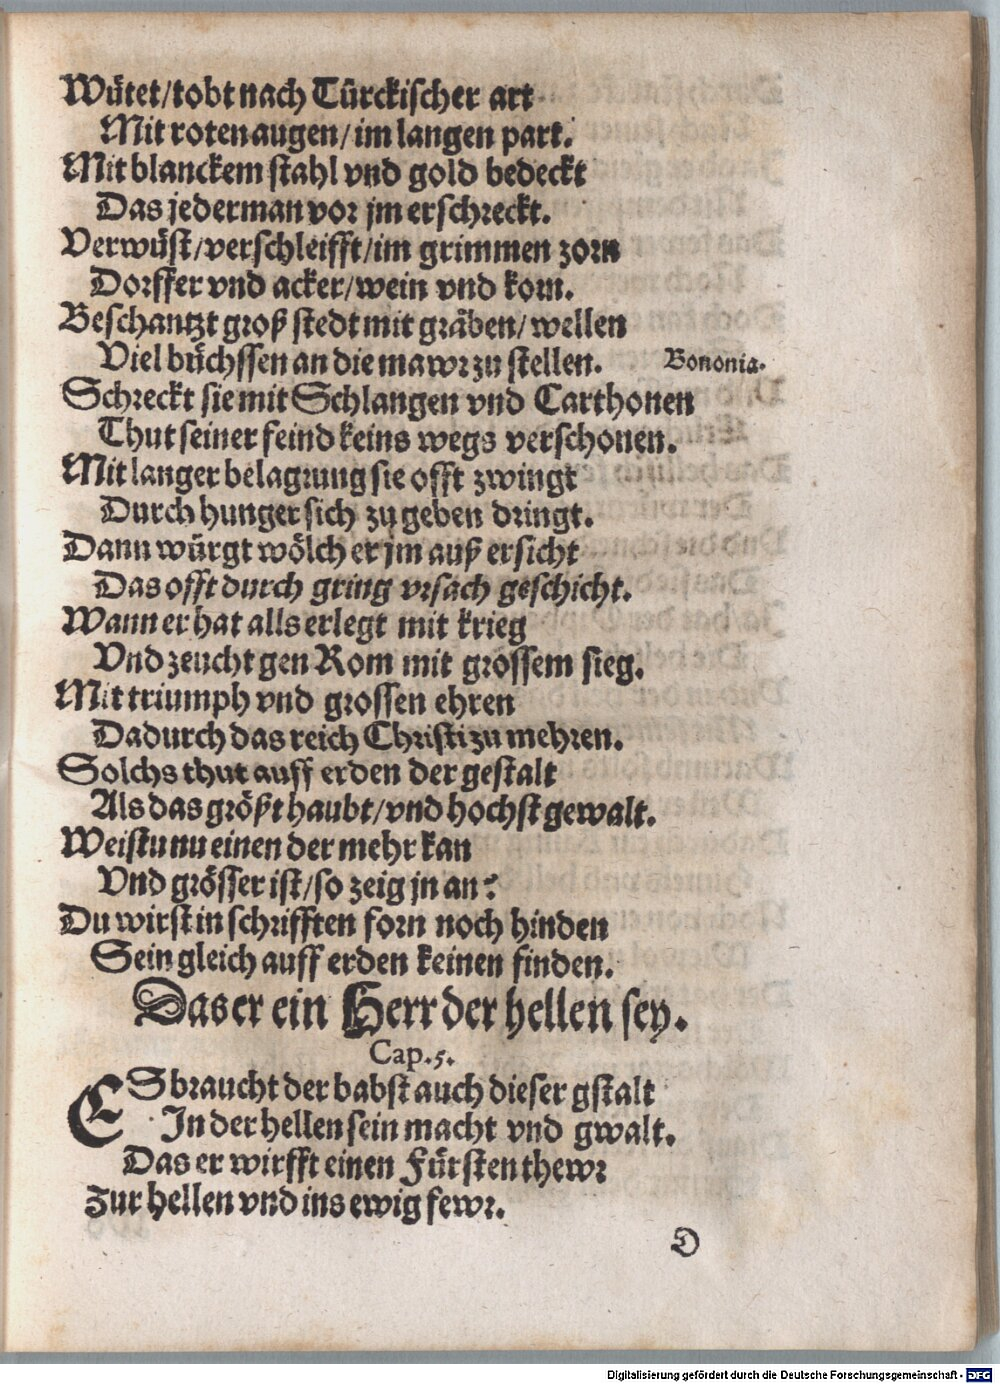 Wütet/tobt nach Türckischer art
Mit roten augen/im langen part.
Mit blanckem stahl vnd gold bedeckt
Das jederman vor jm erschreckt.
Verwüst/verschleifft/im grimmen zorn
Dorffer vnd acker/wein vnd korn.
Beschantzt groß stedt mit gräben/wellen
Viel büchssen an die mawr zu stellen.
Bononia.
Schreckt sie mit Schlangen vnd Carthonen
Thut seiner feind keins wegs verschonen.
Mit langer belagrung sie offt zwingt
Durch hunger sich zu geben dringt.
Dann würgt wölch er jm auß ersicht
Das offt durch gring vrsach geschicht.
Wann er hat alls erlegt mit krieg
Vnd zeucht gen Rom mit grossem sieg.
Mit triumph vnd grossen ehren
Dadurch das reich Christi zu mehren.
Solchs thut auff erden der gestalt
Als das größt haubt/vnd hochst gewalt.
Weistu nu einen der mehr kan
Vnd grösser ist/so zeig jn an?
Du wirst in schrifften forn noch hinden
Sein gleich auff erden keinen finden.
Das er ein Herr der hellen sey.
Cap.5.
ES braucht der babst auch dieser gstalt
In der hellen sein macht vnd gwalt.
Das er wirfft einen Fürsten thewr
Zur hellen vnd ins ewig fewr.
D
Digitalisierung gefördert durch die Deutsche Forschungsgemeinschaft - DFG